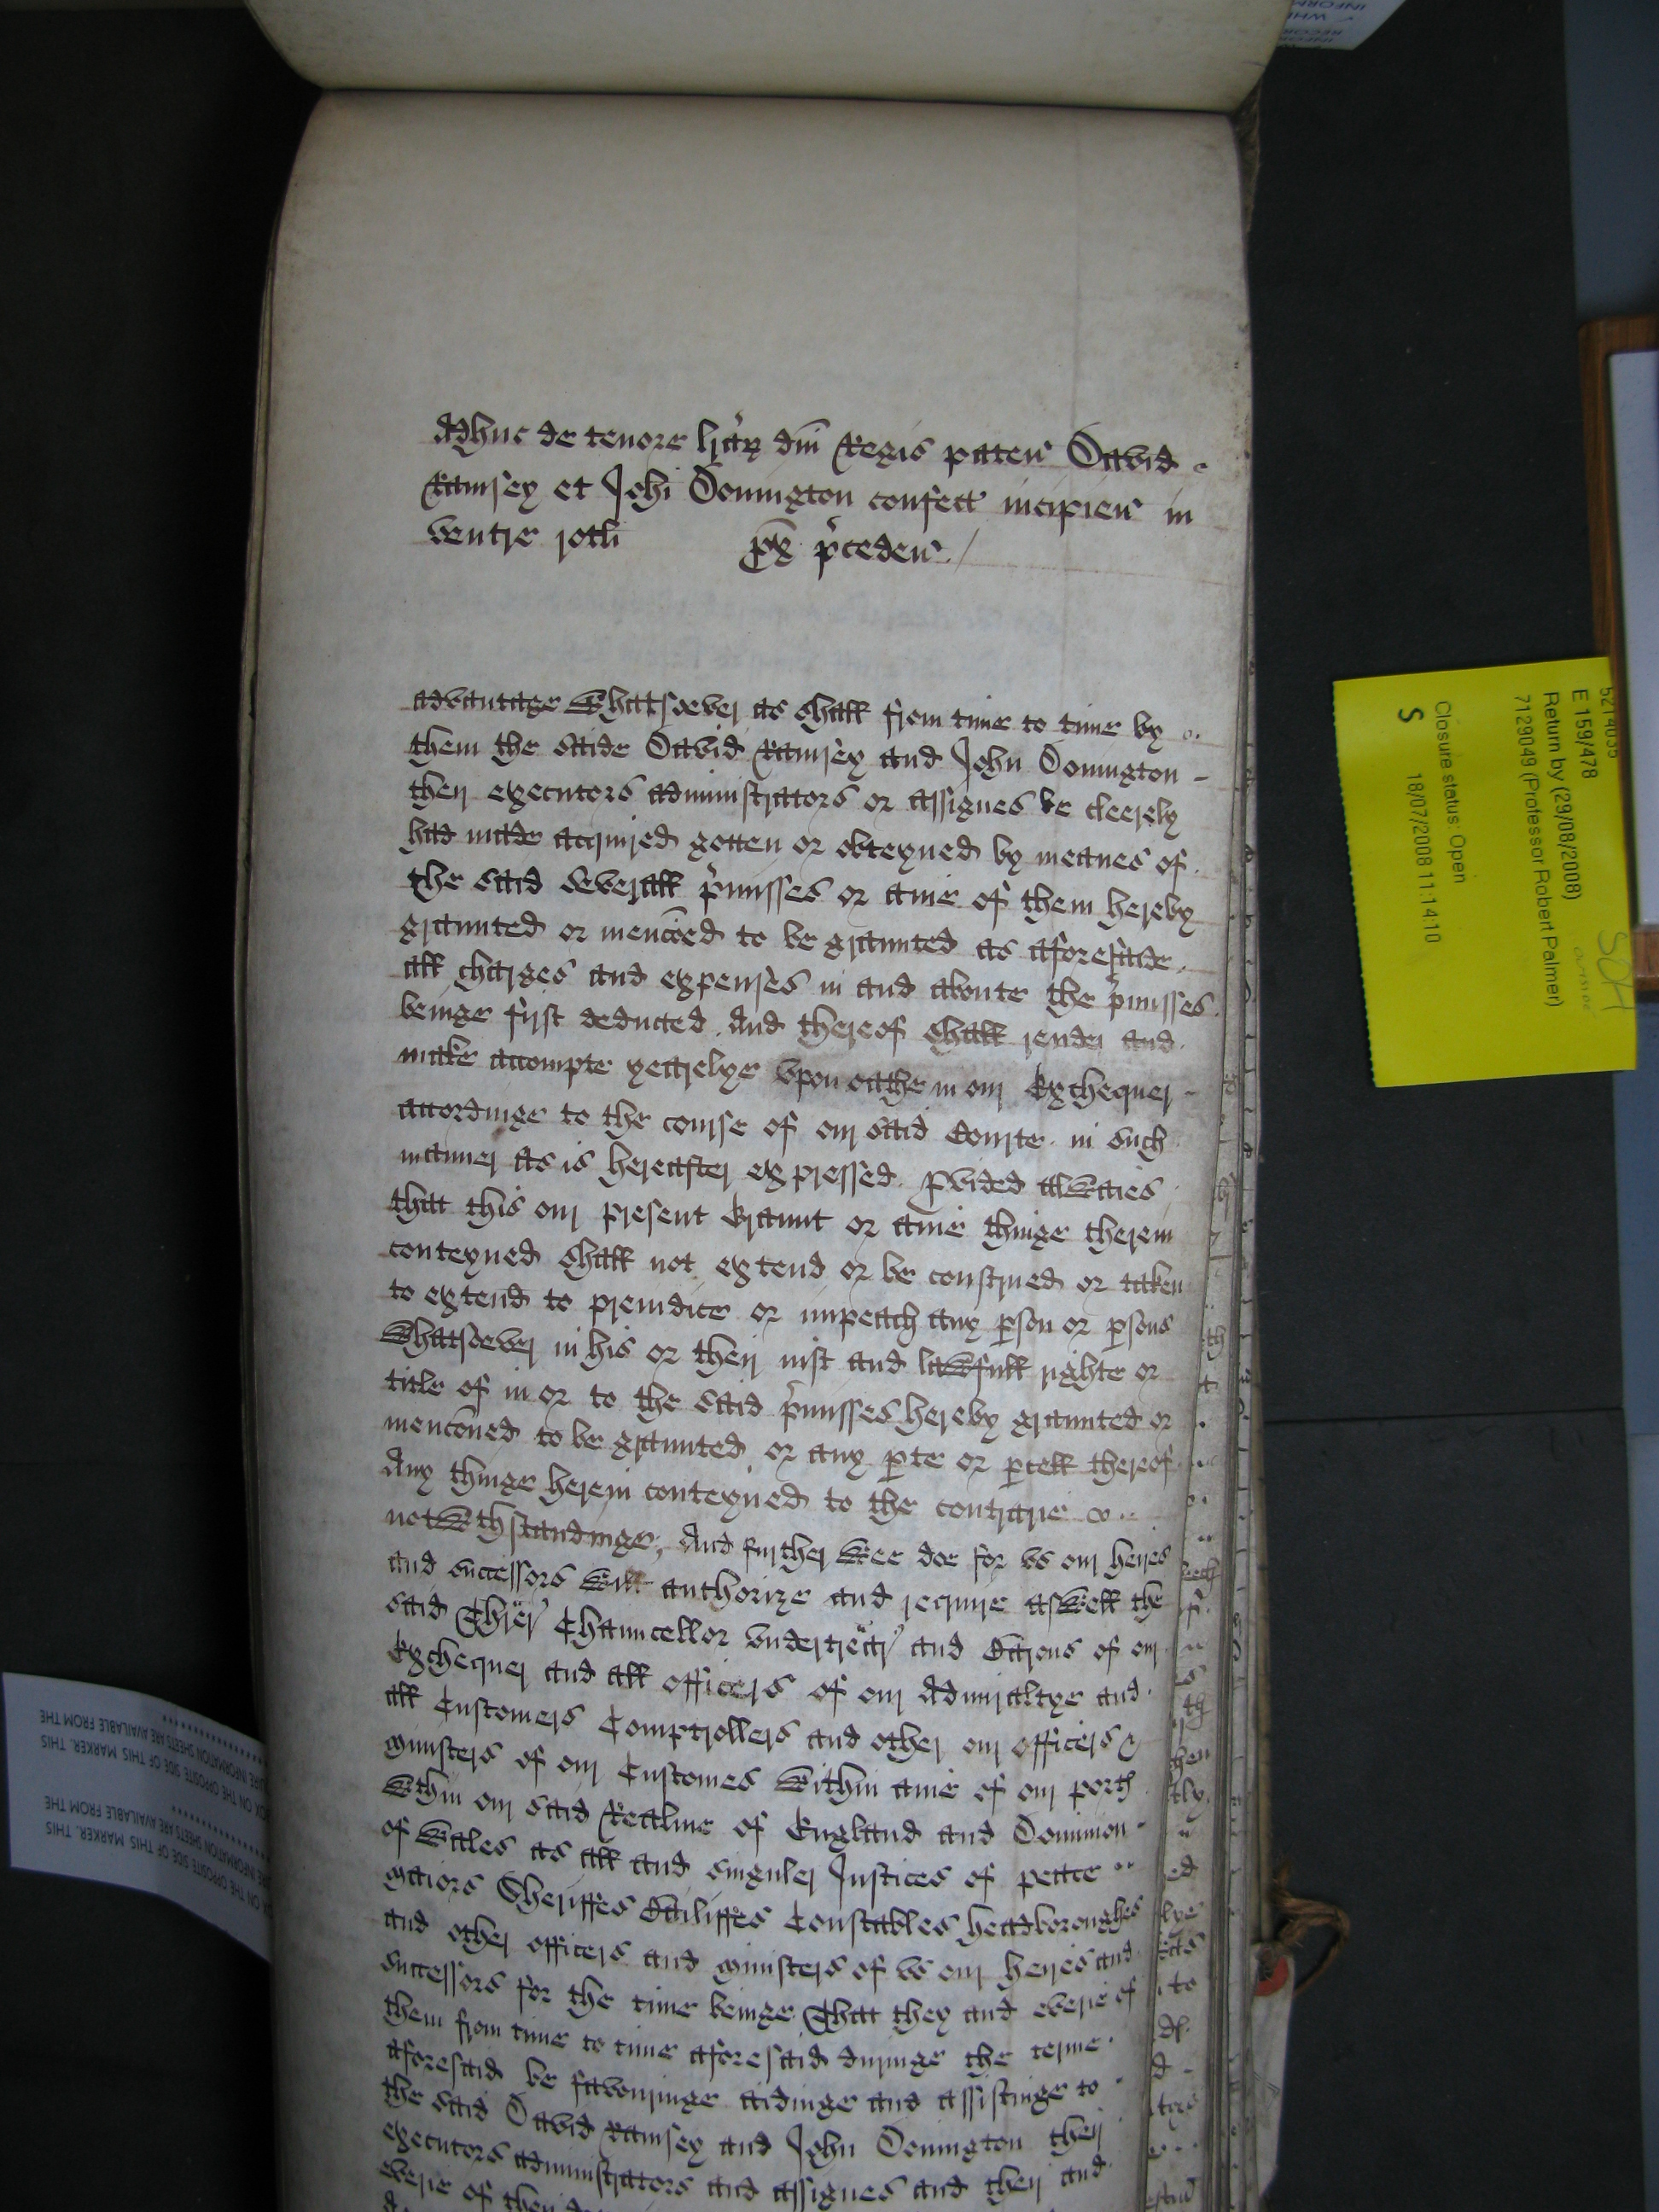 Adhuc de tenore lrar dni Regis paten David
Ramsey et Johi Donington confect incipien in
ventre rotli px pceden
advantage whatsoever as shall from time to time by
them the saide David Ramsey and John Donington
their executors administrators or assignes be cleerely
had made acquired gotten or obteyned by meanes of
the said severall pmisses or anie of them hereby
graunted or menconed to be graunted as aforesaide
all charges and expenses in and aboute the pmisses
beinge first deducted And thereof shall render and
make accompte yearelye vpon oathe in our Exchequer
accordinge to the course of our said Courte in such
manner as is hereafter expressed Pvided alwaies
that this our present Graunt or anie thinge therein
conteyned shall not extend or be construed or taken
to extend to preiudice or impeach any pson or psons
whatsoever in his or their iust and lawfull righte or
title of in or to the said pmisses hereby graunted or
menconed to be graunted or any pte or pcell thereof
Any thinge herein conteyned to the contrarie
notwthstandinge, And further wee doe for vs our heires
and successors will authorize and require aswell the
said Threr Chauncellor vndertrear and Barons of our
Exchequer and all officers of our Admiraltye and
all Customers Comptrollers and other our officers &
ministers of our Customes within anie of our ports
wthin our said Realme of England and Dominion
of Wales as all and singuler Justices of peace
maiors Sheriffes Bailiffes Constables headboroughes
and other officers and ministers of vs our heires and
successors for the time beinge That they and everie of
them from time to time aforesaid duringe the terme
aforesaid be favouringe aidinge and assistinge to
the said David Ramsey and John Donington their
executors administrators and assignes and their and
everie of their
5214035
E 159/478
Return by (29/08/2008)
7129049 (Professor Robert Palmer)
Closure status: Open
18/07/2008 11:14:10
S
SOH
ON THE OPPOSITE SIDE OF THIS MARKER. THIS
INFORMATION SHEETS ARE AVAILABLE FROM THE
ON THE OPPOSITE SIDE OF THIS MARKER. THIS
INFORMATION SHEETS ARE AVAILABLE FROM THE